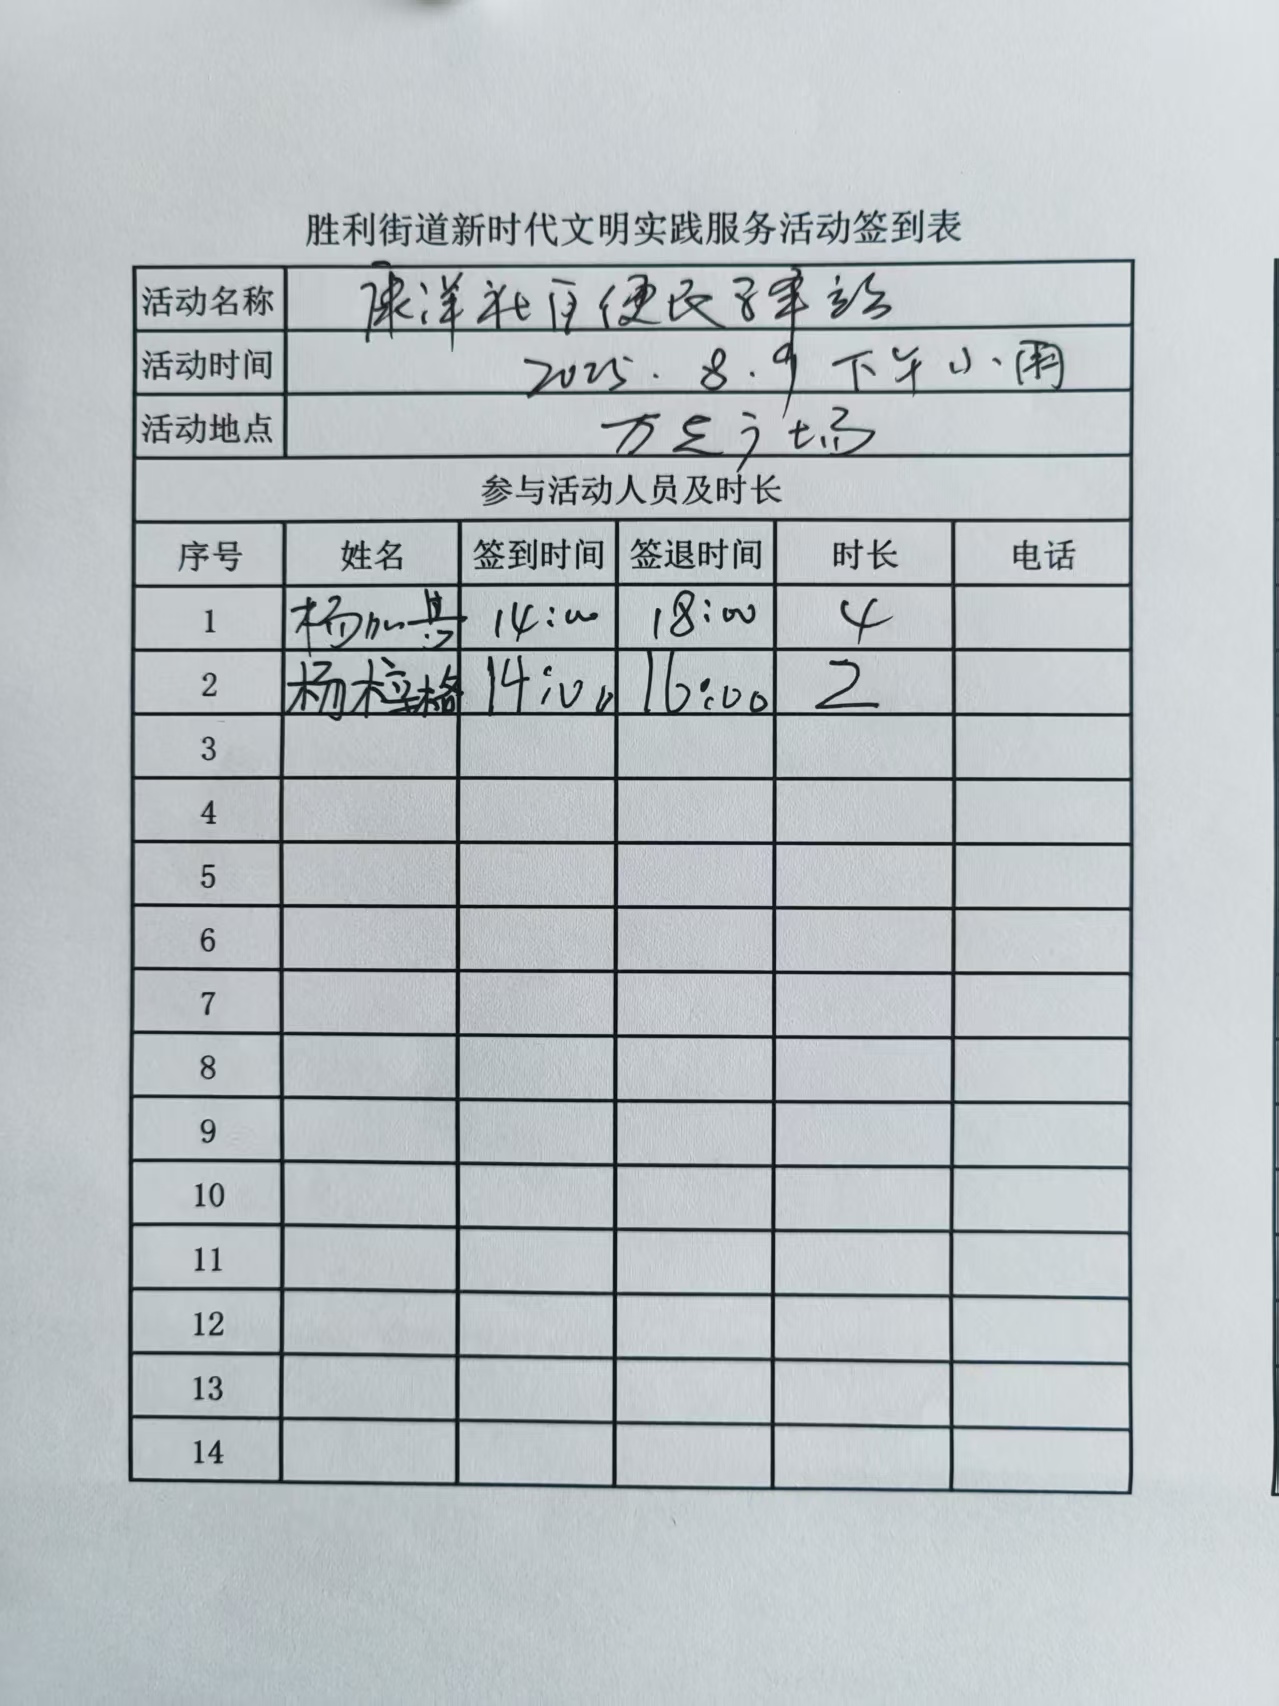 胜利街道新时代文明实践服务活动签到表
活动名称 康洋社区便民
活动时间 2025.8.9 下午小雨
活动地点 万达广场
参与活动人员及时长
序号 姓名 签到时间 签退时间 时长 电话
1 杨 14:00 18:00 4
2 杨梓格 14:00 16:00 2
3
4
5
6
7
8
9
10
11
12
13
14